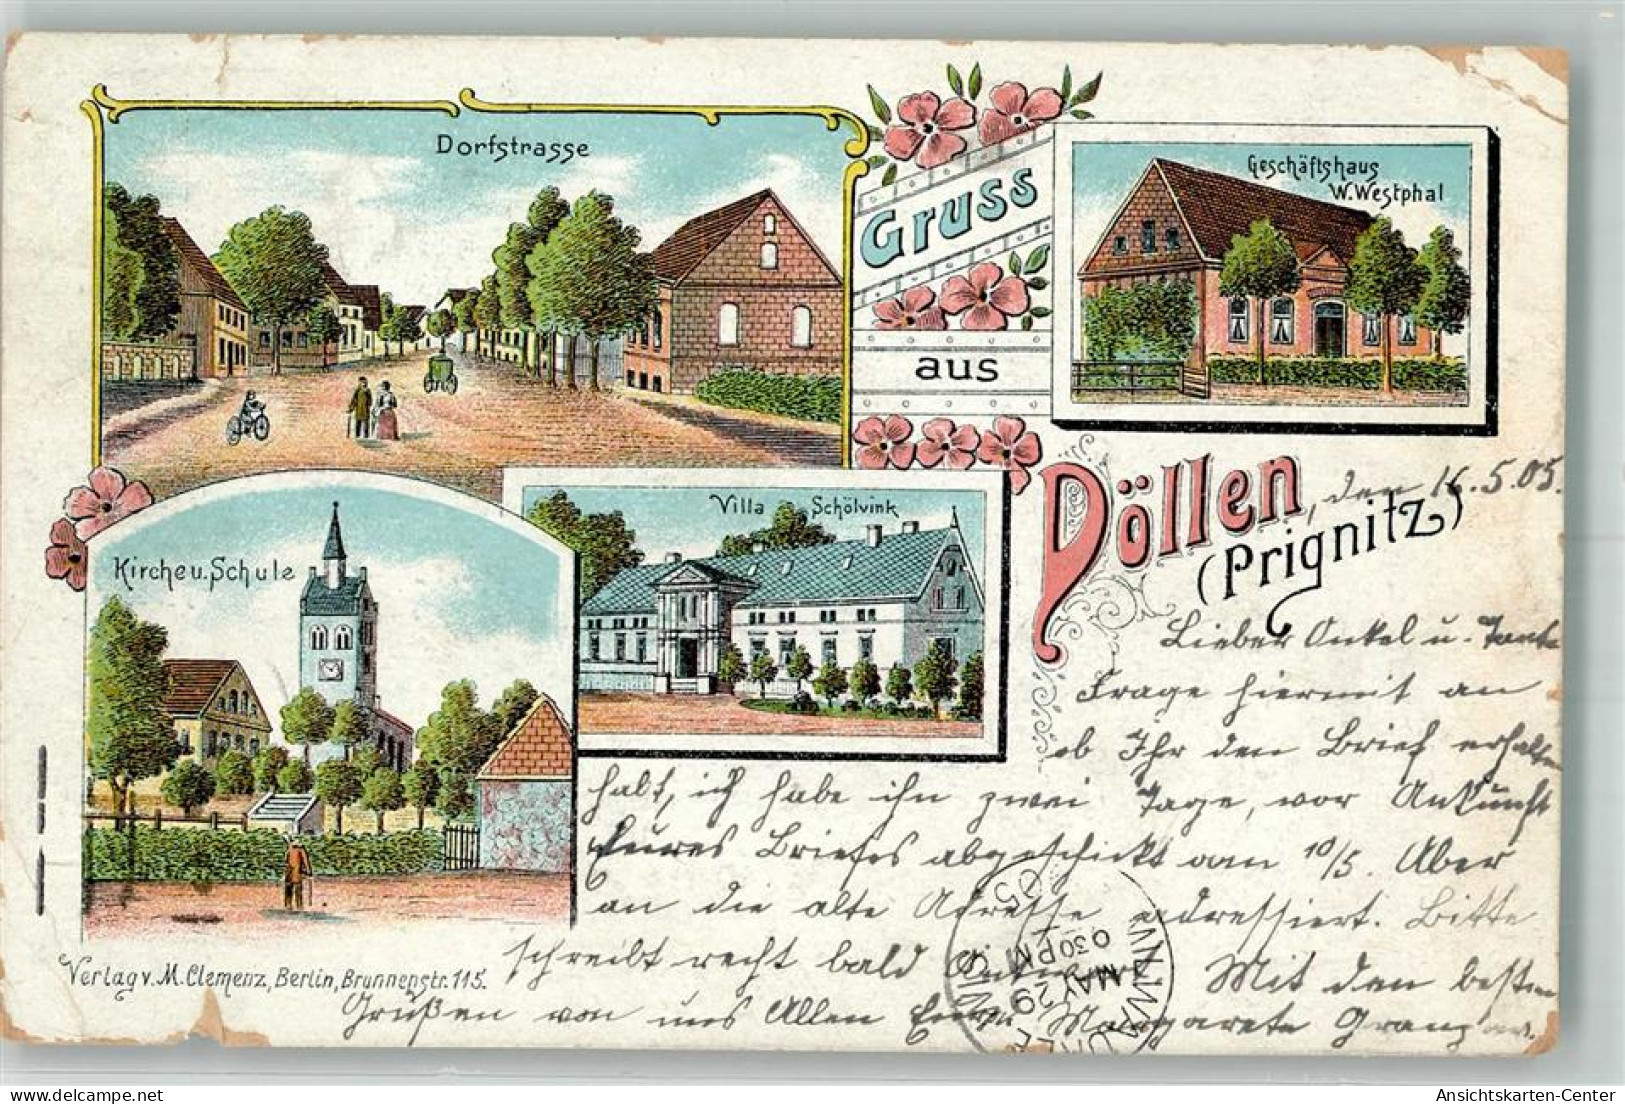 Dorfstrasse
Gruss
aus
Geschäftshaus
W. Westphal
Döllen, den 16.5.05.
(Prignitz)
Kirche u. Schule
Villa Schölvink
Lieber Onkel u. Tante
Frage hiermit an
ob Ihr den Brief erhalten
habt, ich habe ihn zwei Tage, vor Ankunft
Eures Briefes abgeschickt am 10/5. Aber
an die alte Adresse adressiert. Bitte
schreibt recht bald Antwort Mit den besten
Grüßen von uns Allen Eure Margarete
Verlag v. M. Clemenz, Berlin, Brunnenstr. 115.
MILWAUKEE
MAY 29
630 PM
05
WIS
Ansichtskarten-Center
© delcampe.net